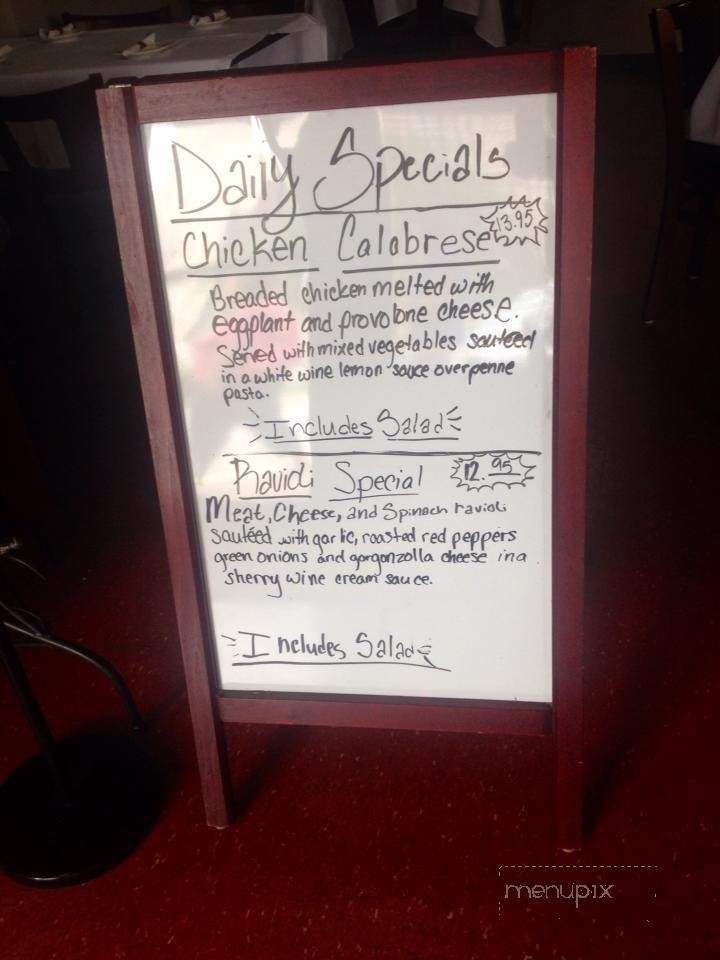 Daily Specials
Chicken Calabrese 13.95
Breaded chicken melted with
eggplant and provolone cheese.
Served with mixed vegetables sauteed
in a white wine lemon sauce over penne
pasta.
Includes Salad
Ravioli Special 12.95
Meat, Cheese, and Spinach ravioli
sautéed with garlic, roasted red peppers
green onions and gorgonzolla cheese in a
sherry wine cream sauce.
Includes Salad
menupix